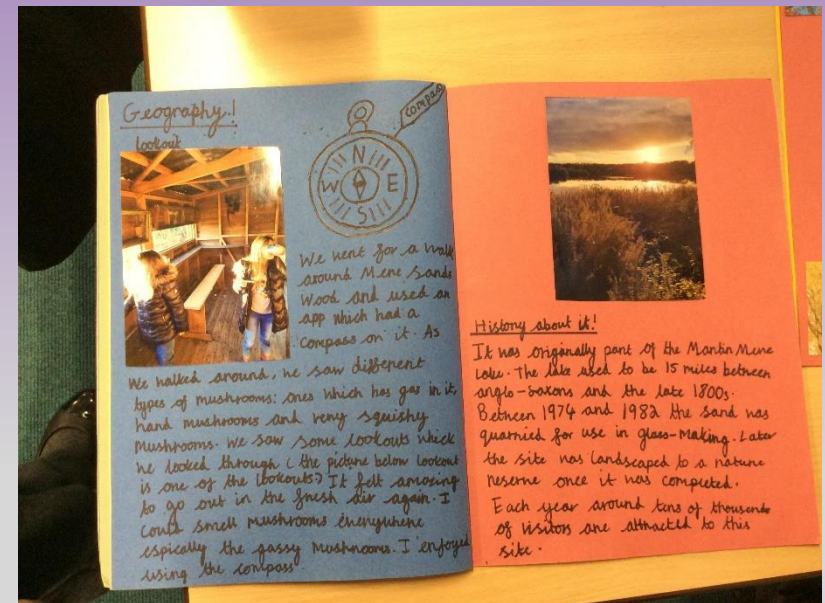 Geography!
lookout
compass
N
W E
S
We went for a walk
around Mere Sands
Wood and used an
app which had a
compass on it. As
we walked around, we saw different
types of mushrooms: ones which has gas in it,
hand mushrooms and very squishy
Mushrooms. We saw some lookouts which
we looked through (the picture below lookout
is one of the lookouts?) It felt amazing
to go out in the fresh air again. I
could smell mushrooms everywhere
espically the gassy mushrooms. I enjoyed
using the compass.
History about it!
It was originally part of the Martin Mere
Lake. The lake used to be 15 miles between
anglo-saxons and the late 1800s.
Between 1974 and 1982 the sand was
quarried for use in glass-making. Later
the site was landscaped to a nature
reserve once it was completed.
Each year around tens of thousands
of visitors are attracted to this
site.